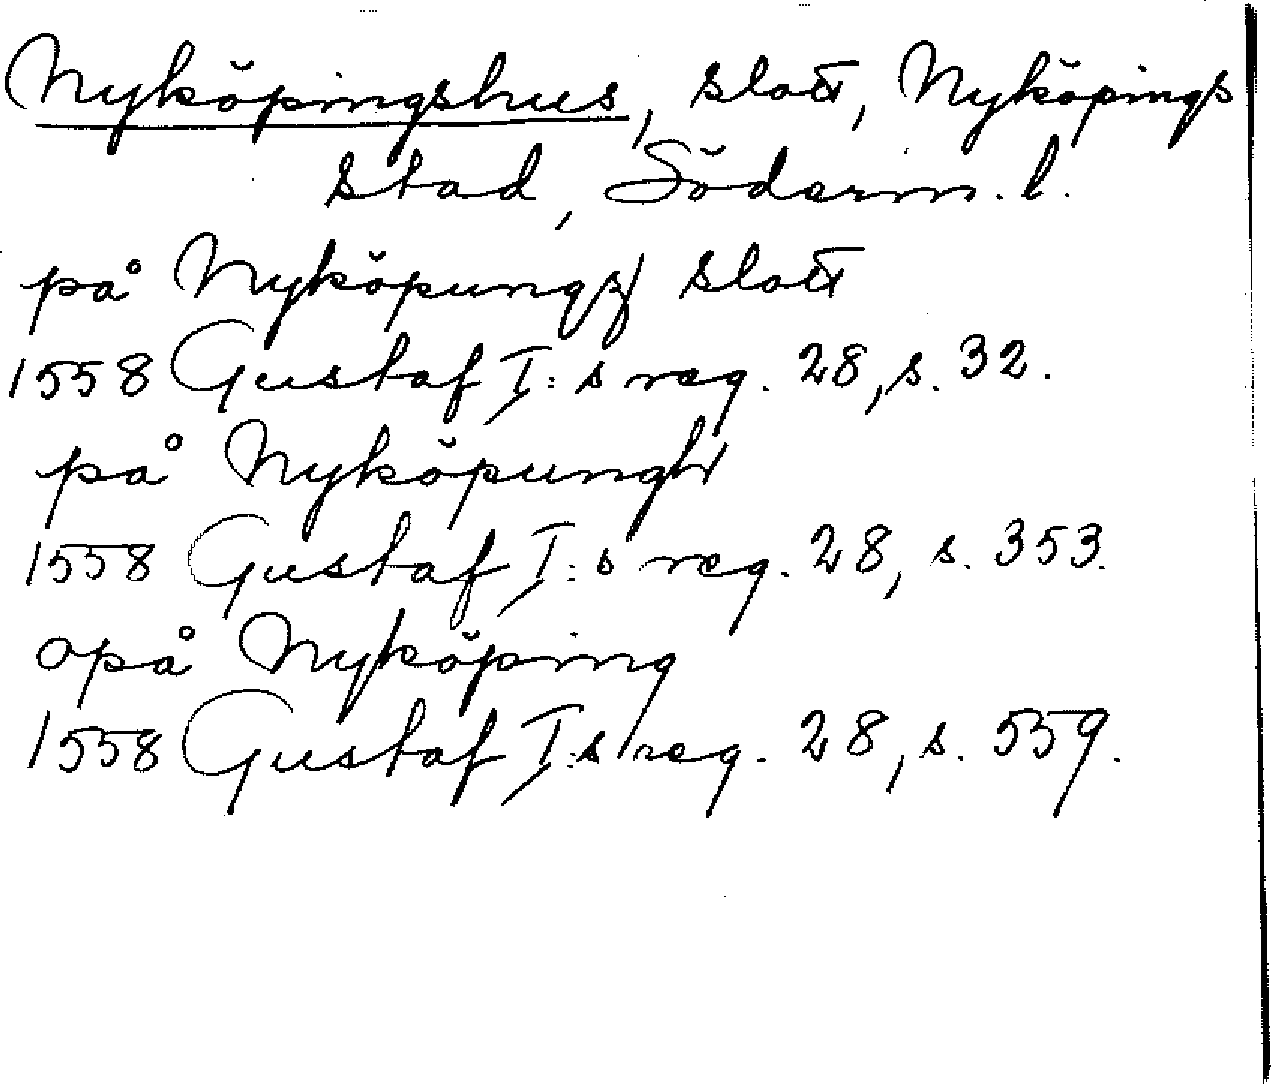 Nyköpingshus, slott, Nyköpings
stad, Söderm. l.
på Nyköpungz slott
1558 Gustaf I:s reg. 28, s. 32.
på Nyköpungh
1558 Gustaf I:s reg. 28, s. 353.
opå Nyköping
1558 Gustaf I:s reg. 28, s. 559.